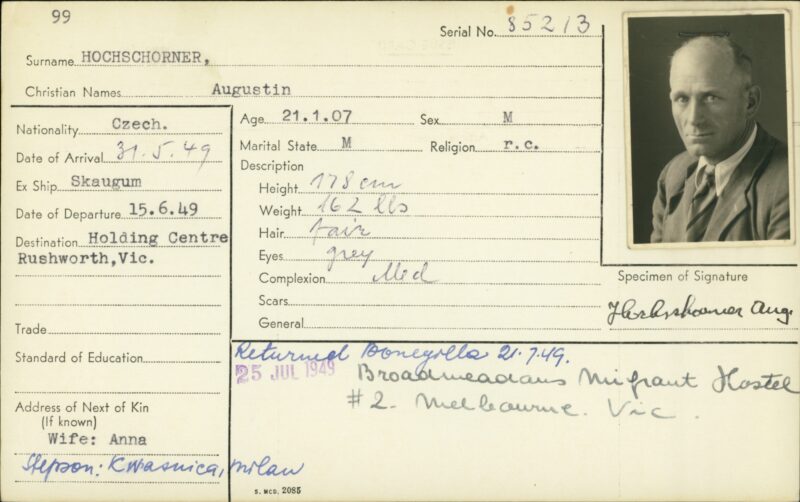 99
Serial No. 85213
Surname HOCHSCHORNER,
Christian Names Augustin
Nationality Czech.
Date of Arrival 31.5.49
Ex Ship Skaugum
Date of Departure 15.6.49
Destination Holding Centre
Rushworth,Vic.
Trade
Standard of Education
Address of Next of Kin
(If known)
Wife: Anna
Stepson: Kwasnica, Milan
Age 21.1.07 Sex M
Marital State M Religion r.c.
Description
Height 178 cm
Weight 162 lbs
Hair fair
Eyes grey
Complexion Med
Scars
General
Specimen of Signature
Hochschorner Aug.
Returned Bonegilla 21.7.49.
25 JUL 1949 Broadmeadows Migrant Hostel
#2. Melbourne. Vic.
S. MCD. 2085